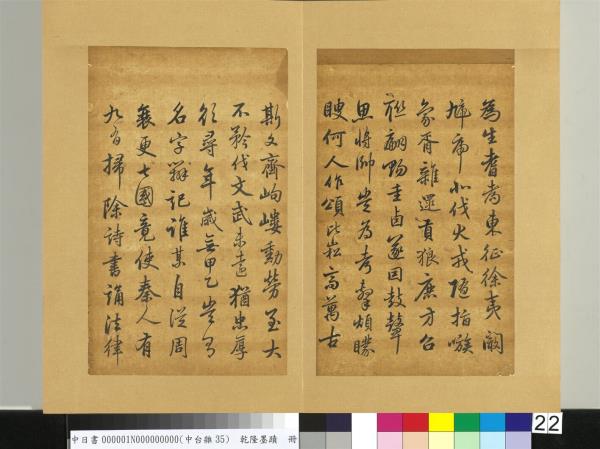 為生耆耇東征徐夷闞
虓虎北伐犬戎隨指嗾
象胥雜遝貢狼鹿方召
聯翩賜圭卣遂因鼓鼙
思將帥豈為考擊煩矇
瞍何人作頌比崧高萬古
斯文齊岣嶁勳勞至大
不矜伐文武未遠猶忠厚
欲尋年歲無甲乙豈有
名字辯記誰某自從周
衰更七國竟使秦人有
九有掃除詩書誦法律
22
中日書000001N000000000(中台雜35) 乾隆墨蹟 冊